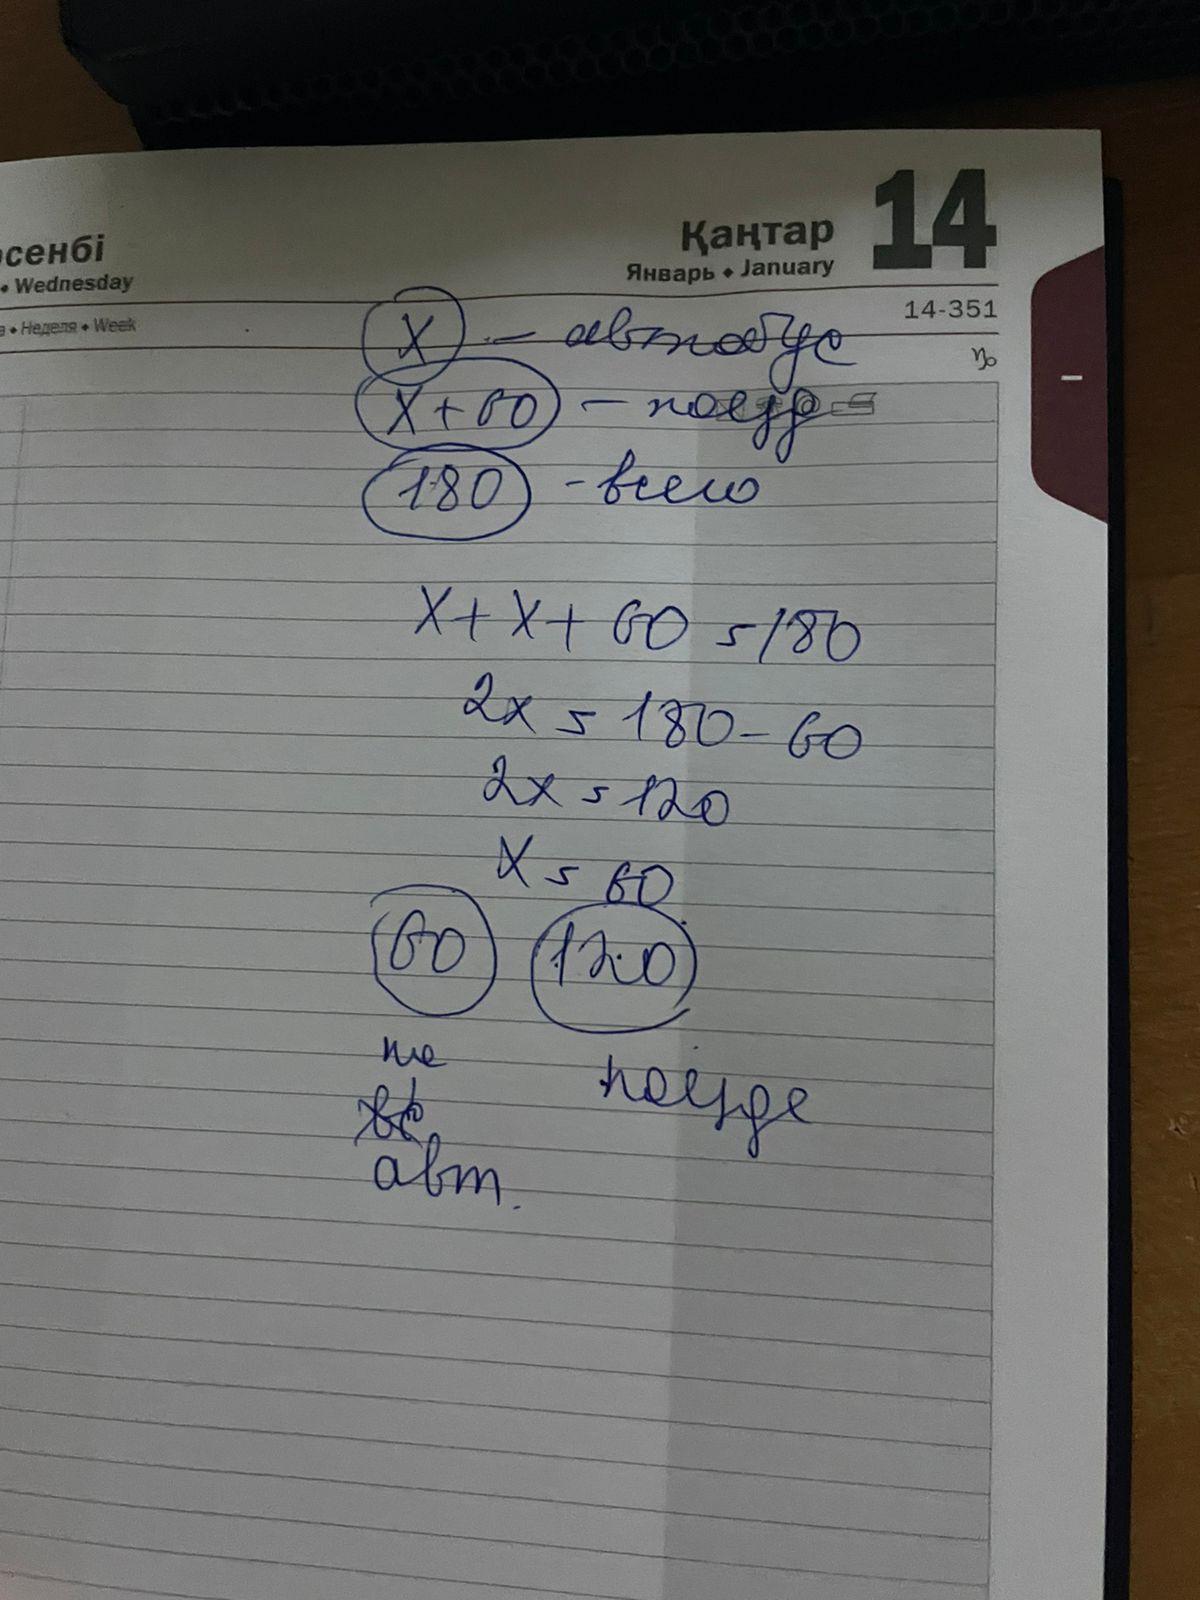 рсенбі
• Wednesday
а • Неделя • Week
Қаңтар 14
Январь • January
14-351
x - автобус
x + 60 - поезд
180 - всего
x + x + 60 = 180
2x = 180 - 60
2x = 120
x = 60
60 120
на поезде
авт.